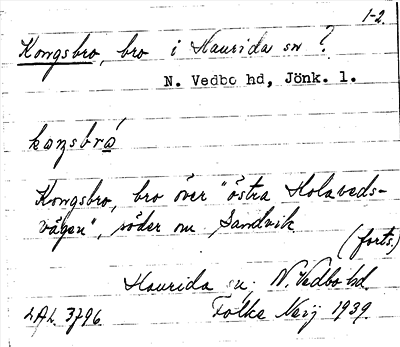 1-2.
Kongsbro, bro i Haurida sn?
N. Vedbo hd, Jönk. l.
kaŋsbrǻ
Kongsbro, bro över "östra Holaveds-
vägen", söder om Sandvik.
(forts.)
Haurida sn, N. Vedbo hd.
LAL 3796. Folke Nerj 1939.